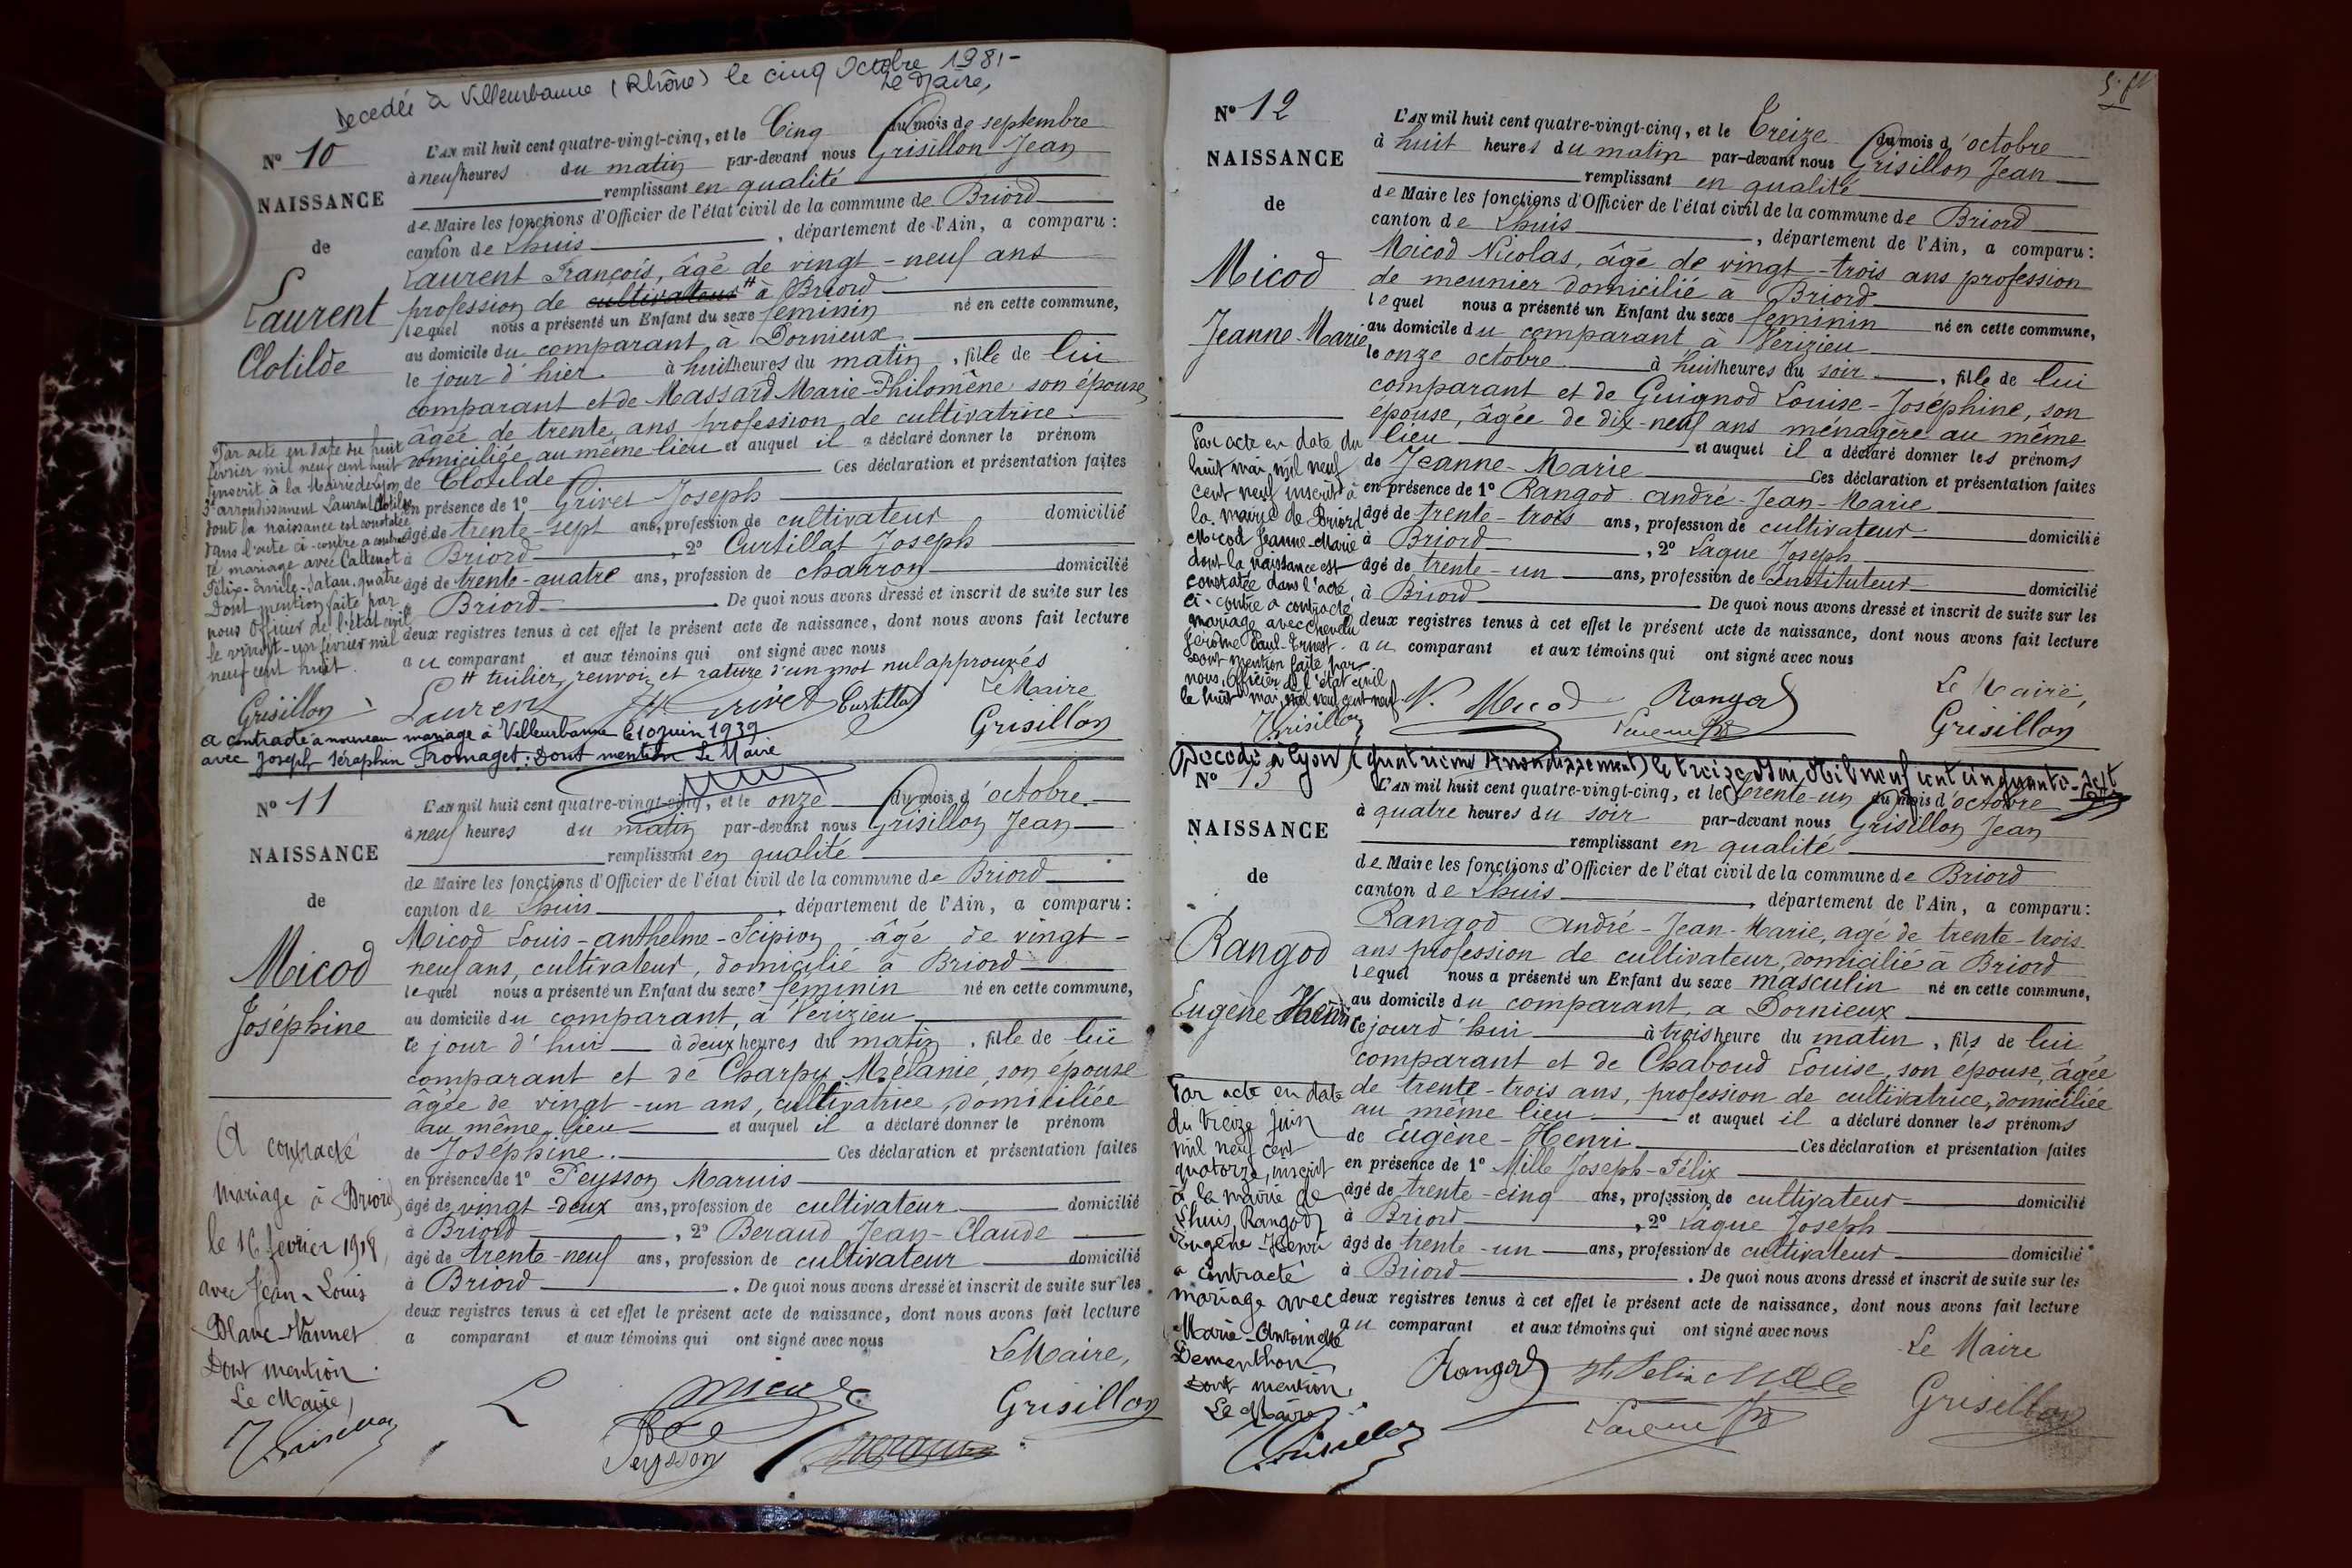 Decedée à Villeurbanne (Rhône) le cinq Octobre 1981-
Le Maire,
N° 10
NAISSANCE
de
Laurent
Clotilde
L'AN mil huit cent quatre-vingt-cinq, et le Cinq du mois de septembre
à neuf heures du matin par-devant nous Grisillon Jean
remplissant en qualité
de Maire les fonctions d'Officier de l'état civil de la commune de Briord
canton de Lhuis, département de l'Ain, a comparu :
Laurent François, âgé de vingt-neuf ans
profession de cultivateur # à Briord
lequel nous a présenté un Enfant du sexe féminin né en cette commune,
au domicile du comparant, à Dornieux
le jour d'hier à huit heures du matin, fille de lui
comparant et de Massard Marie-Philomène son épouse
âgée de trente ans profession de cultivatrice
domiciliée au même lieu et auquel il a déclaré donner le prénom
de Clotilde Ces déclaration et présentation faites
en présence de 1° Grivet Joseph
âgé de trente-sept ans, profession de cultivateur domicilié
à Briord, 2° Curtillat Joseph
âgé de trente-quatre ans, profession de charron domicilié
à Briord. De quoi nous avons dressé et inscrit de suite sur les
deux registres tenus à cet effet le présent acte de naissance, dont nous avons fait lecture
au comparant et aux témoins qui ont signé avec nous
# tuilier, renvoi et rature d'un mot nul approuvés
Le Maire
Laurent Grivet Curtillat Grisillon
Par acte en date du huit
février mil neuf cent huit
inscrit à la Mairie de Lyon
3e arrondissement Laurent Clotilde
dont la naissance est constatée
dans l'acte ci-contre a contrac
té mariage avec Cattenot
Félix-Emile-
Dont mention faite par
nous Officier de l'état civil
le vingt-un février mil
neuf cent huit.
Grisillon
a contracté à nouveau mariage à Villeurbanne le 10 juin 1939
avec Joseph Séraphin Fromaget. Dont mention Le Maire
N° 11
NAISSANCE
de
Micod
Joséphine
L'AN mil huit cent quatre-vingt-cinq, et le onze du mois d'octobre
à neuf heures du matin par-devant nous Grisillon Jean
remplissant en qualité
de Maire les fonctions d'Officier de l'état civil de la commune de Briord
canton de Lhuis département de l'Ain, a comparu :
Micod Louis-anthelme-Scipion âgé de vingt-
neuf ans, cultivateur, domicilié à Briord
lequel nous a présenté un Enfant du sexe féminin né en cette commune,
au domicile du comparant, à Vérizieu
ce jour d'hui à deux heures du matin, fille de lui
comparant et de Charpy Mélanie, son épouse
âgée de vingt-un ans, cultivatrice, domiciliée
au même lieu et auquel il a déclaré donner le prénom
de Joséphine. Ces déclaration et présentation faites
en présence de 1° Peysson Marius
âgé de vingt-deux ans, profession de cultivateur domicilié
à Briord, 2° Beraud Jean-Claude
âgé de trente-neuf ans, profession de cultivateur domicilié
à Briord. De quoi nous avons dressé et inscrit de suite sur les
deux registres tenus à cet effet le présent acte de naissance, dont nous avons fait lecture
a comparant et aux témoins qui ont signé avec nous
Le Maire,
Micod Grisillon
Peysson
A contracté
mariage à Briord
le 16 février 1918
avec Jean-Louis
Blanc-
Dont mention
Le Maire,
Grisillon
5. f
N° 12
NAISSANCE
de
Micod
Jeanne-Marie
L'AN mil huit cent quatre-vingt-cinq, et le Treize du mois d'octobre
à huit heures du matin par-devant nous Grisillon Jean
remplissant en qualité
de Maire les fonctions d'Officier de l'état civil de la commune de Briord
canton de Lhuis, département de l'Ain, a comparu :
Micod Nicolas, âgé de vingt-trois ans profession
de meunier domicilié à Briord
lequel nous a présenté un Enfant du sexe féminin né en cette commune,
au domicile du comparant à Vérizieu
le onze octobre à huit heures du soir, fille de lui
comparant et de Guignod Louise-Joséphine, son
épouse, âgée de dix-neuf ans ménagère au même
lieu et auquel il a déclaré donner les prénoms
de Jeanne-Marie Ces déclaration et présentation faites
en présence de 1° Rangod andré-Jean-Marie
âgé de trente-trois ans, profession de cultivateur domicilié
à Briord, 2° Laque Joseph
âgé de trente-un ans, profession de Instituteur domicilié
à Briord De quoi nous avons dressé et inscrit de suite sur les
deux registres tenus à cet effet le présent acte de naissance, dont nous avons fait lecture
au comparant et aux témoins qui ont signé avec nous
Le Maire,
N. Micod Rangod Grisillon
Par acte en date du
huit mai mil neuf
cent neuf inscrit à
la mairie de Briord
Micod Jeanne-Marie
dont la naissance est
constatée dans l'acte
ci-contre a contracté
mariage avec Chevelu
Jérôme Paul-Ernest.
Dont mention faite par
nous, Officier de l'état civil
le huit mai mil neuf cent neuf
Grisillon
Decedé à Lyon (quatrième Arrondissement) le treize Mai Mil neuf cent cinquante-sept
N° 13
NAISSANCE
de
Rangod
Eugène Henri
L'AN mil huit cent quatre-vingt-cinq, et le trente-un du mois d'octobre
à quatre heures du soir par-devant nous Grisillon Jean
remplissant en qualité
de Maire les fonctions d'Officier de l'état civil de la commune de Briord
canton de Lhuis, département de l'Ain, a comparu :
Rangod andré-Jean-Marie, agé de trente-trois
ans profession de cultivateur, domicilié à Briord
lequel nous a présenté un Enfant du sexe masculin né en cette commune,
au domicile du comparant, a Dornieux
ce jourd'hui à trois heure du matin, fils de lui
comparant et de Chaboud Louise, son épouse, âgée
de trente-trois ans, profession de cultivatrice, domiciliée
au même lieu et auquel il a déclaré donner les prénoms
de Eugène-Henri Ces déclaration et présentation faites
en présence de 1° Mille Joseph-Félix
âgé de trente-cinq ans, profession de cultivateur domicilié
à Briord, 2° Laque Joseph
âgé de trente-un ans, profession de cultivateur domicilié
à Briord. De quoi nous avons dressé et inscrit de suite sur les
deux registres tenus à cet effet le présent acte de naissance, dont nous avons fait lecture
au comparant et aux témoins qui ont signé avec nous
Le Maire
Rangod Félix Mille Grisillon
Par acte en date
du treize Juin
mil neuf cent
quatorze, inscrit
à la mairie de
Lhuis, Rangod
Eugène-Henri
a contracté
mariage avec
Marie-Antoinette
Dementhon
Dont mention.
Le Maire
Grisillon